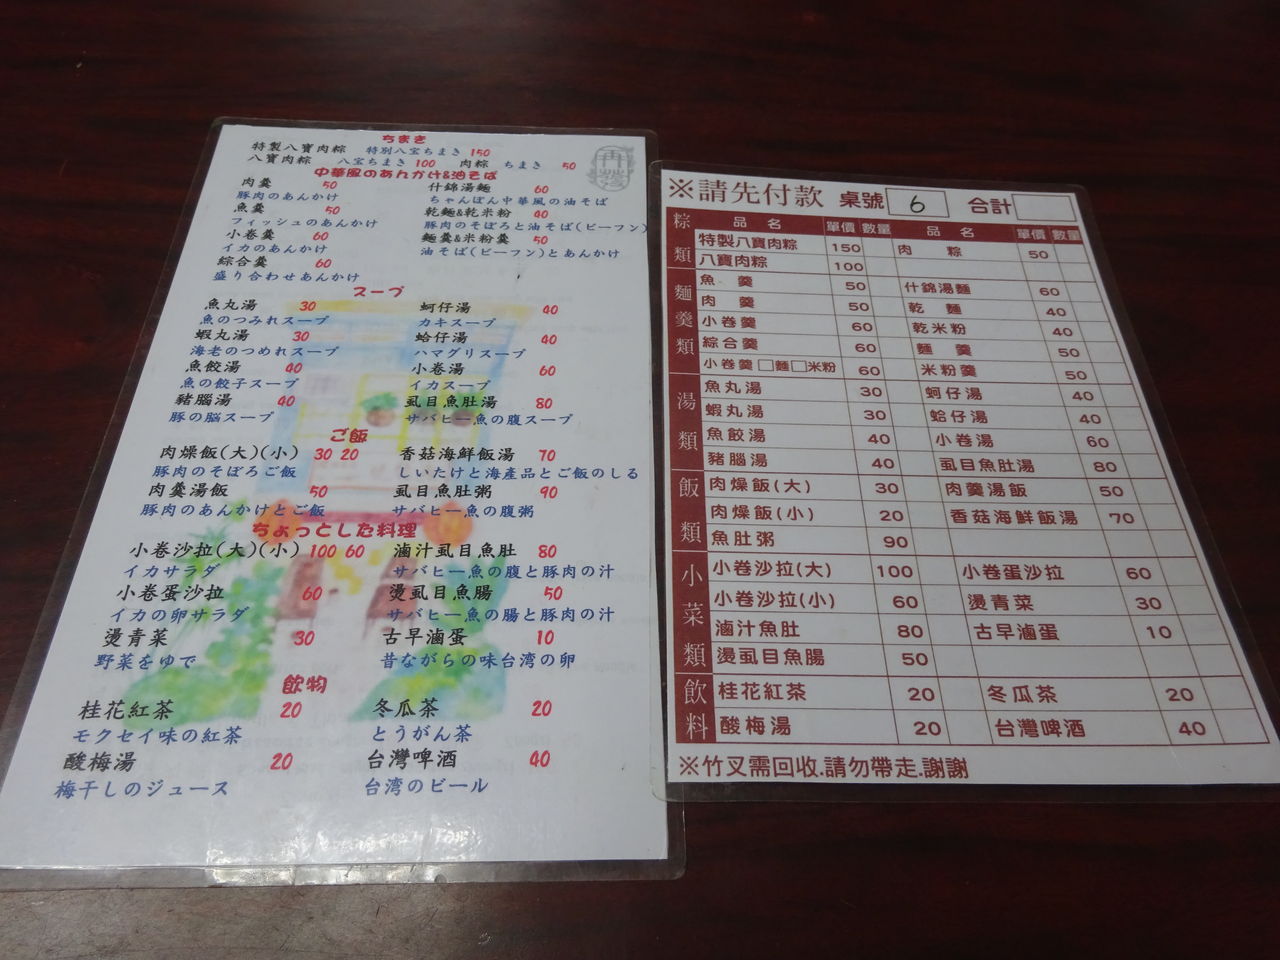 ちまき
特製八寶肉粽 特別八宝ちまき 150
八寶肉粽 八宝ちまき 100 肉粽 ちまき 50
中華風のあんかけ&油そば
肉羹 50 什錦湯麵 60
豚肉のあんかけ ちゃんぽん中華風の油そば
魚羹 50 乾麵&乾米粉 40
フィッシュのあんかけ 豚肉のそぼろと油そば(ビーフン)
小卷羹 60 麵羹&米粉羹 50
イカのあんかけ 油そば(ビーフン)とあんかけ
綜合羹 60
盛り合わせあんかけ
スープ
魚丸湯 30 蚵仔湯 40
魚のつみれスープ カキスープ
蝦丸湯 30 蛤仔湯 40
海老のつめれスープ ハマグリスープ
魚餃湯 40 小卷湯 60
魚の餃子スープ イカスープ
豬腦湯 40 虱目魚肚湯 80
豚の脳スープ サバヒー魚の腹スープ
ご飯
肉燥飯(大)(小) 30 20 香菇海鮮飯湯 70
豚肉のそぼろご飯 しいたけと海產品とご飯のしる
肉羹湯飯 50 虱目魚肚粥 90
豚肉のあんかけとご飯 サバヒー魚の腹粥
ちょっとした料理
小卷沙拉(大)(小) 100 60 滷汁虱目魚肚 80
イカサラダ サバヒー魚の腹と豚肉の汁
小卷蛋沙拉 60 燙虱目魚腸 50
イカの卵サラダ サバヒー魚の腸と豚肉の汁
燙青菜 30 古早滷蛋 10
野菜をゆで 昔ながらの味台湾の卵
飲物
桂花紅茶 20 冬瓜茶 20
モクセイ味の紅茶 とうがん茶
酸梅湯 20 台灣啤酒 40
梅干しのジュース 台湾のビール
※請先付款 桌號 6 合計
粽類 品名 單價 數量 品名 單價 數量
特製八寶肉粽 150 肉粽 50
八寶肉粽 100
麵羹類 魚羹 50 什錦湯麵 60
肉羹 50 乾麵 40
小卷羹 60 乾米粉 40
綜合羹 60 麵羹 50
小卷羹 □麵□米粉 60 米粉羹 50
湯類 魚丸湯 30 蚵仔湯 40
蝦丸湯 30 蛤仔湯 40
魚餃湯 40 小卷湯 60
豬腦湯 40 虱目魚肚湯 80
飯類 肉燥飯(大) 30 肉羹湯飯 50
肉燥飯(小) 20 香菇海鮮飯湯 70
魚肚粥 90
小菜類 小卷沙拉(大) 100 小卷蛋沙拉 60
小卷沙拉(小) 60 燙青菜 30
滷汁魚肚 80 古早滷蛋 10
燙虱目魚腸 50
飲料 桂花紅茶 20 冬瓜茶 20
酸梅湯 20 台灣啤酒 40
※竹叉需回收.請勿帶走.謝謝